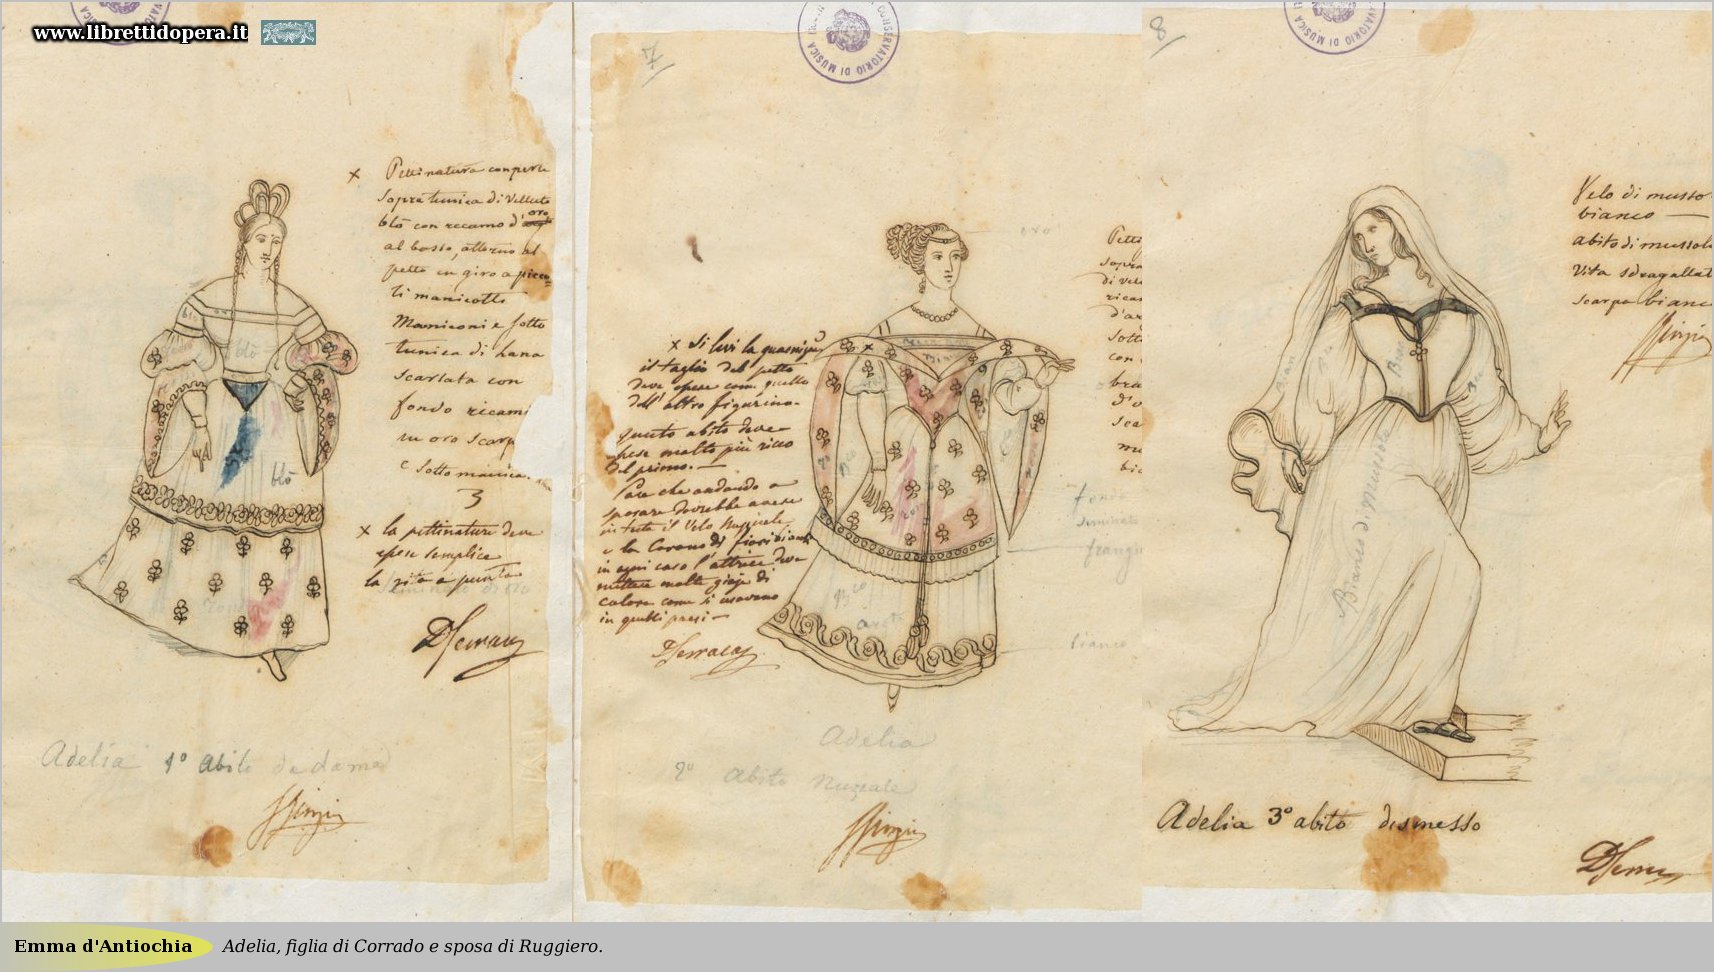 www.librettidopera.it
CONSERVATORIO DI MUSICA
x Pettinatura con perle
sopra tunica di Velluto
blò con recamo d'oro
al basso, attorno al
petto in giro a picco
li manicotti
Maniconi e sotto
tunica di Lana
scarlata con
fondo ricami
in oro scarp
e sotto manica
3
x la pettinatura deve
essere semplice
la vita a punta
blò
blò
blò
Adelia 1º Abito da dama
7
CONSERVATORIO DI MUSICA
oro
x Si levi la
il taglio del petto
deve essere come quello
dell'altro figurino.
questo abito deve
essere molto più ricco
del primo.
Pare che andando a
sposare dovrebbe avere
in testa il Velo Nuziale,
e la Corona di fiori bianchi
in ogni caso l'attrice deve
mettere molte gioje di
colore come si usavano
in quelli paesi
Petti
sopra
di vel
rica
d'ar
sotto
con
bra
d'o
sca
mu
bia
fondo
seminato
frangia
bianco
Adelia
2º Abito Nuziale
8
Velo di musso
bianco
abito di mussol
Vita sdragallat
scarpa bianc
Bianco di Mussola
Adelia 3º abito dismesso
Emma d'Antiochia Adelia, figlia di Corrado e sposa di Ruggiero.